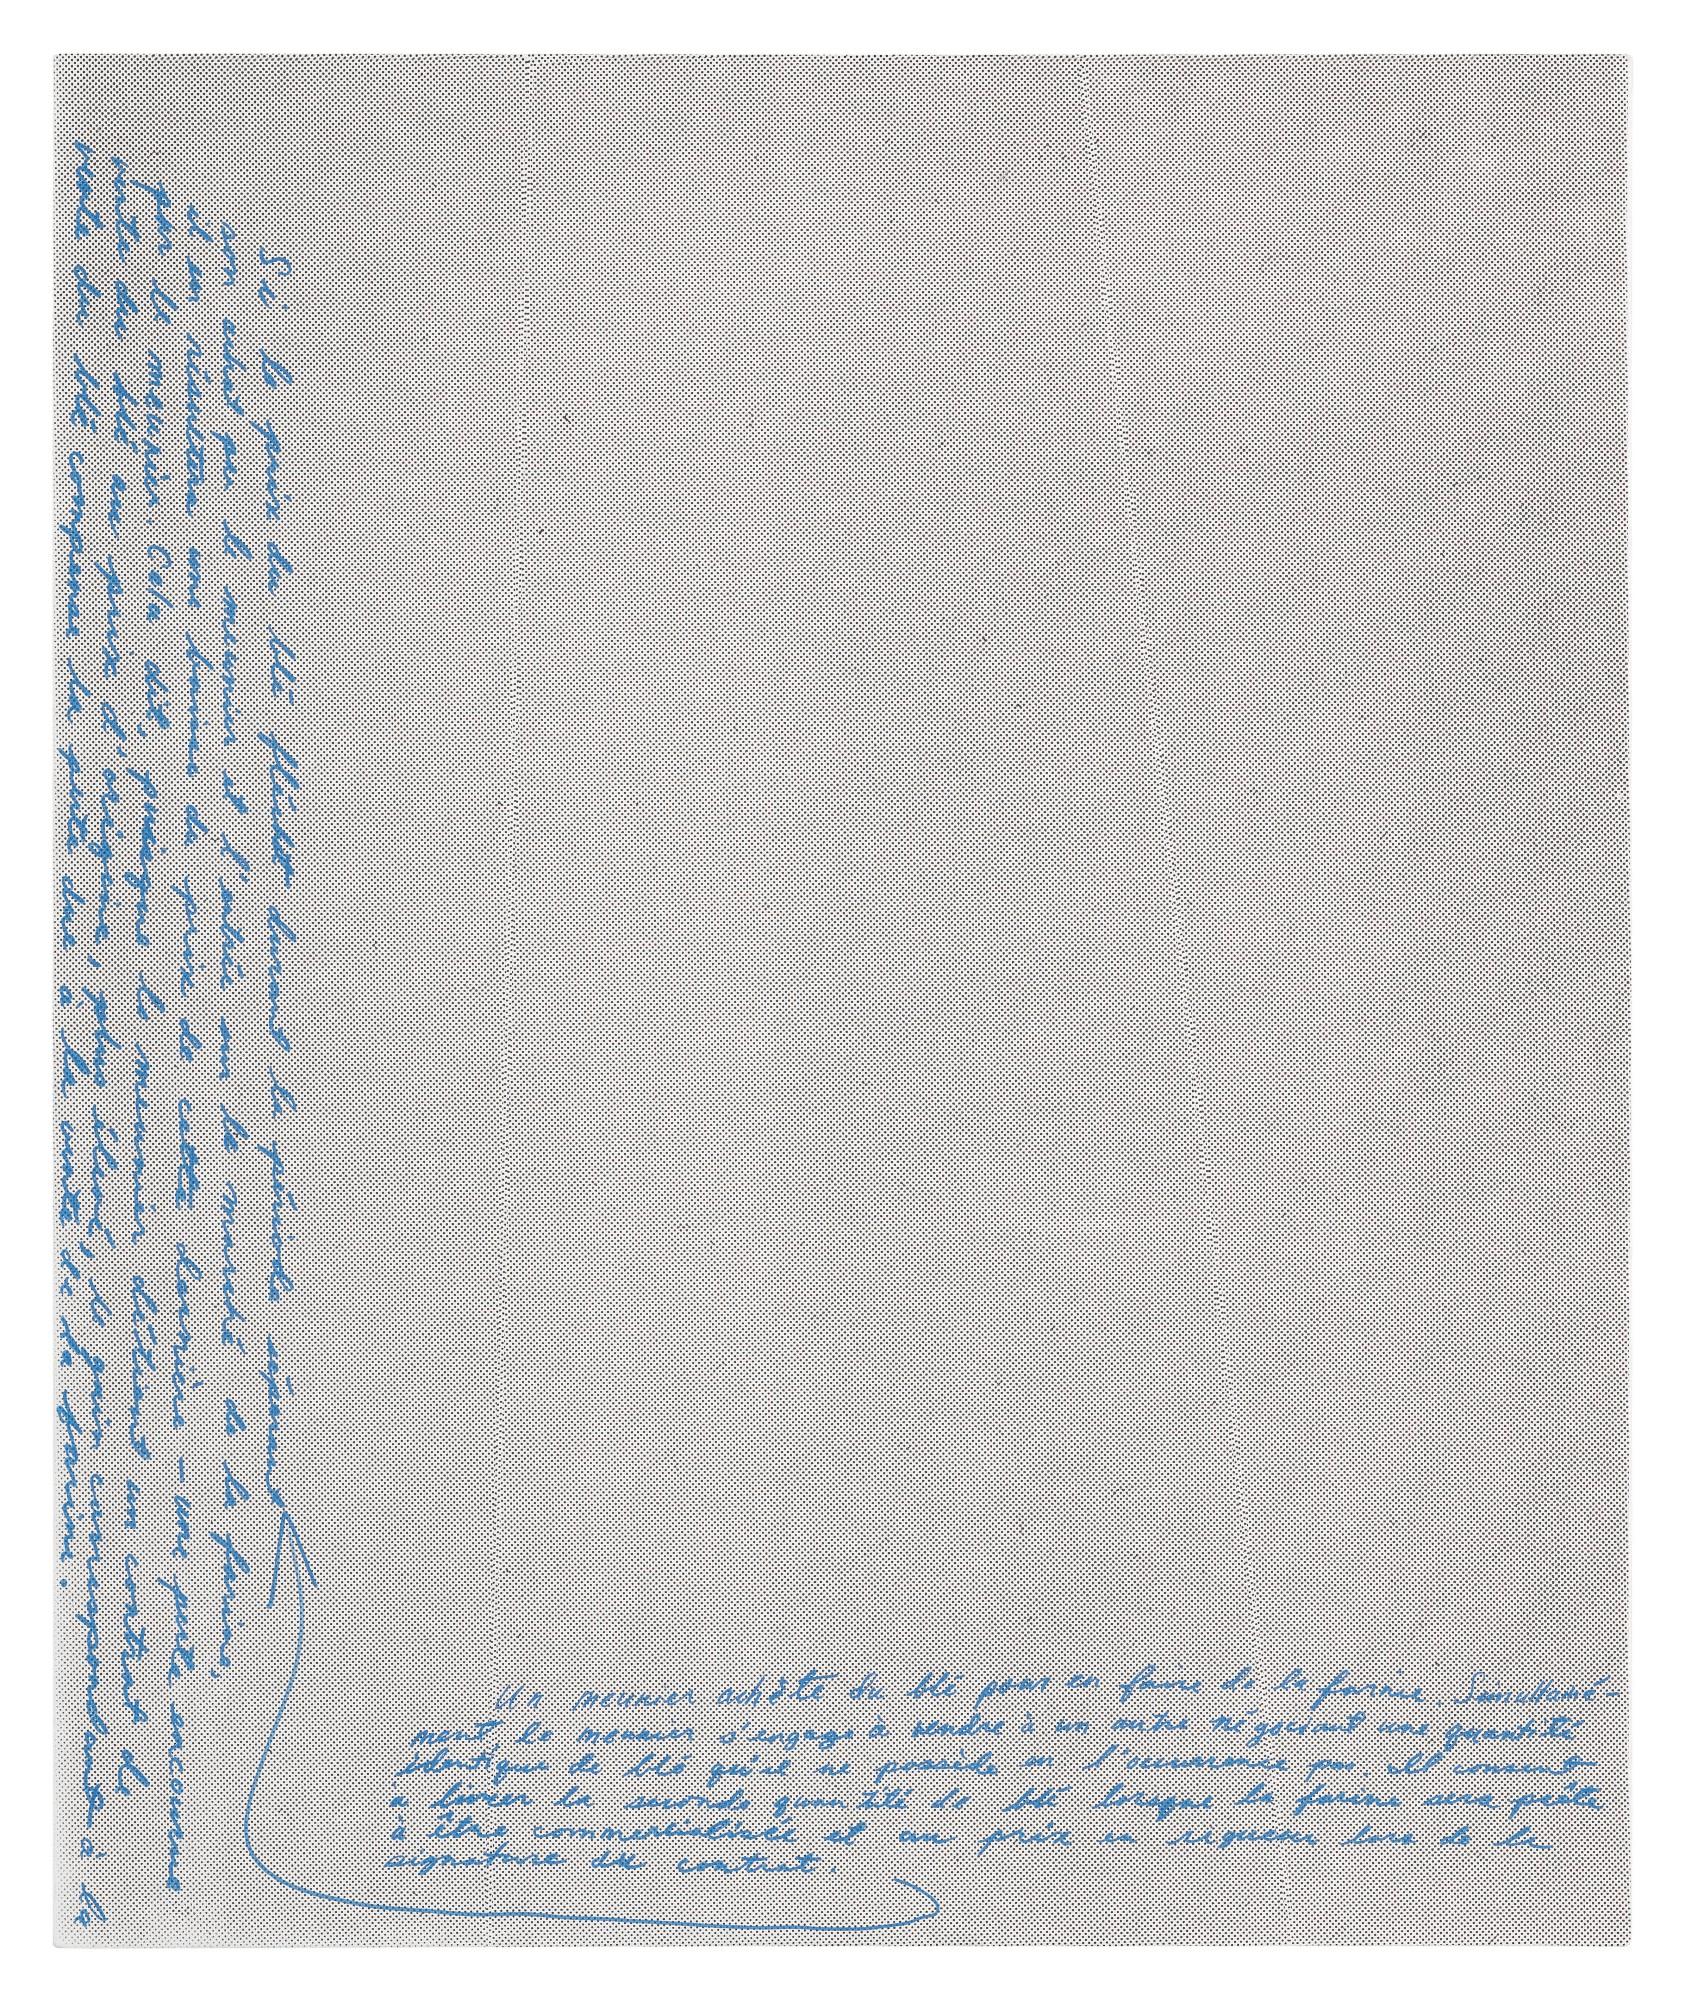 Un meunier achète du blé pour en faire de la farine. Simultané-
ment, le meunier s'engage à vendre à un autre négociant une quantité
identique de blé qu'il ne possède en l'occurrence pas. Il consent
à livrer la seconde quantité de blé lorsque la farine sera prête
à être commercialisée et au prix en vigueur lors de la
signature du contrat.
Si le prix du blé fléchit durant la période séparant
son achat par le meunier et l'entrée sur le marché de la farine,
il en résultera une baisse du prix de cette dernière – une perte encourue
par le meunier. Cela dit, puisque le meunier détient un contrat de
vente du blé au prix d'origine, plus élevé, le gain correspondant à la
vente du blé compense la perte due à la vente de la farine.